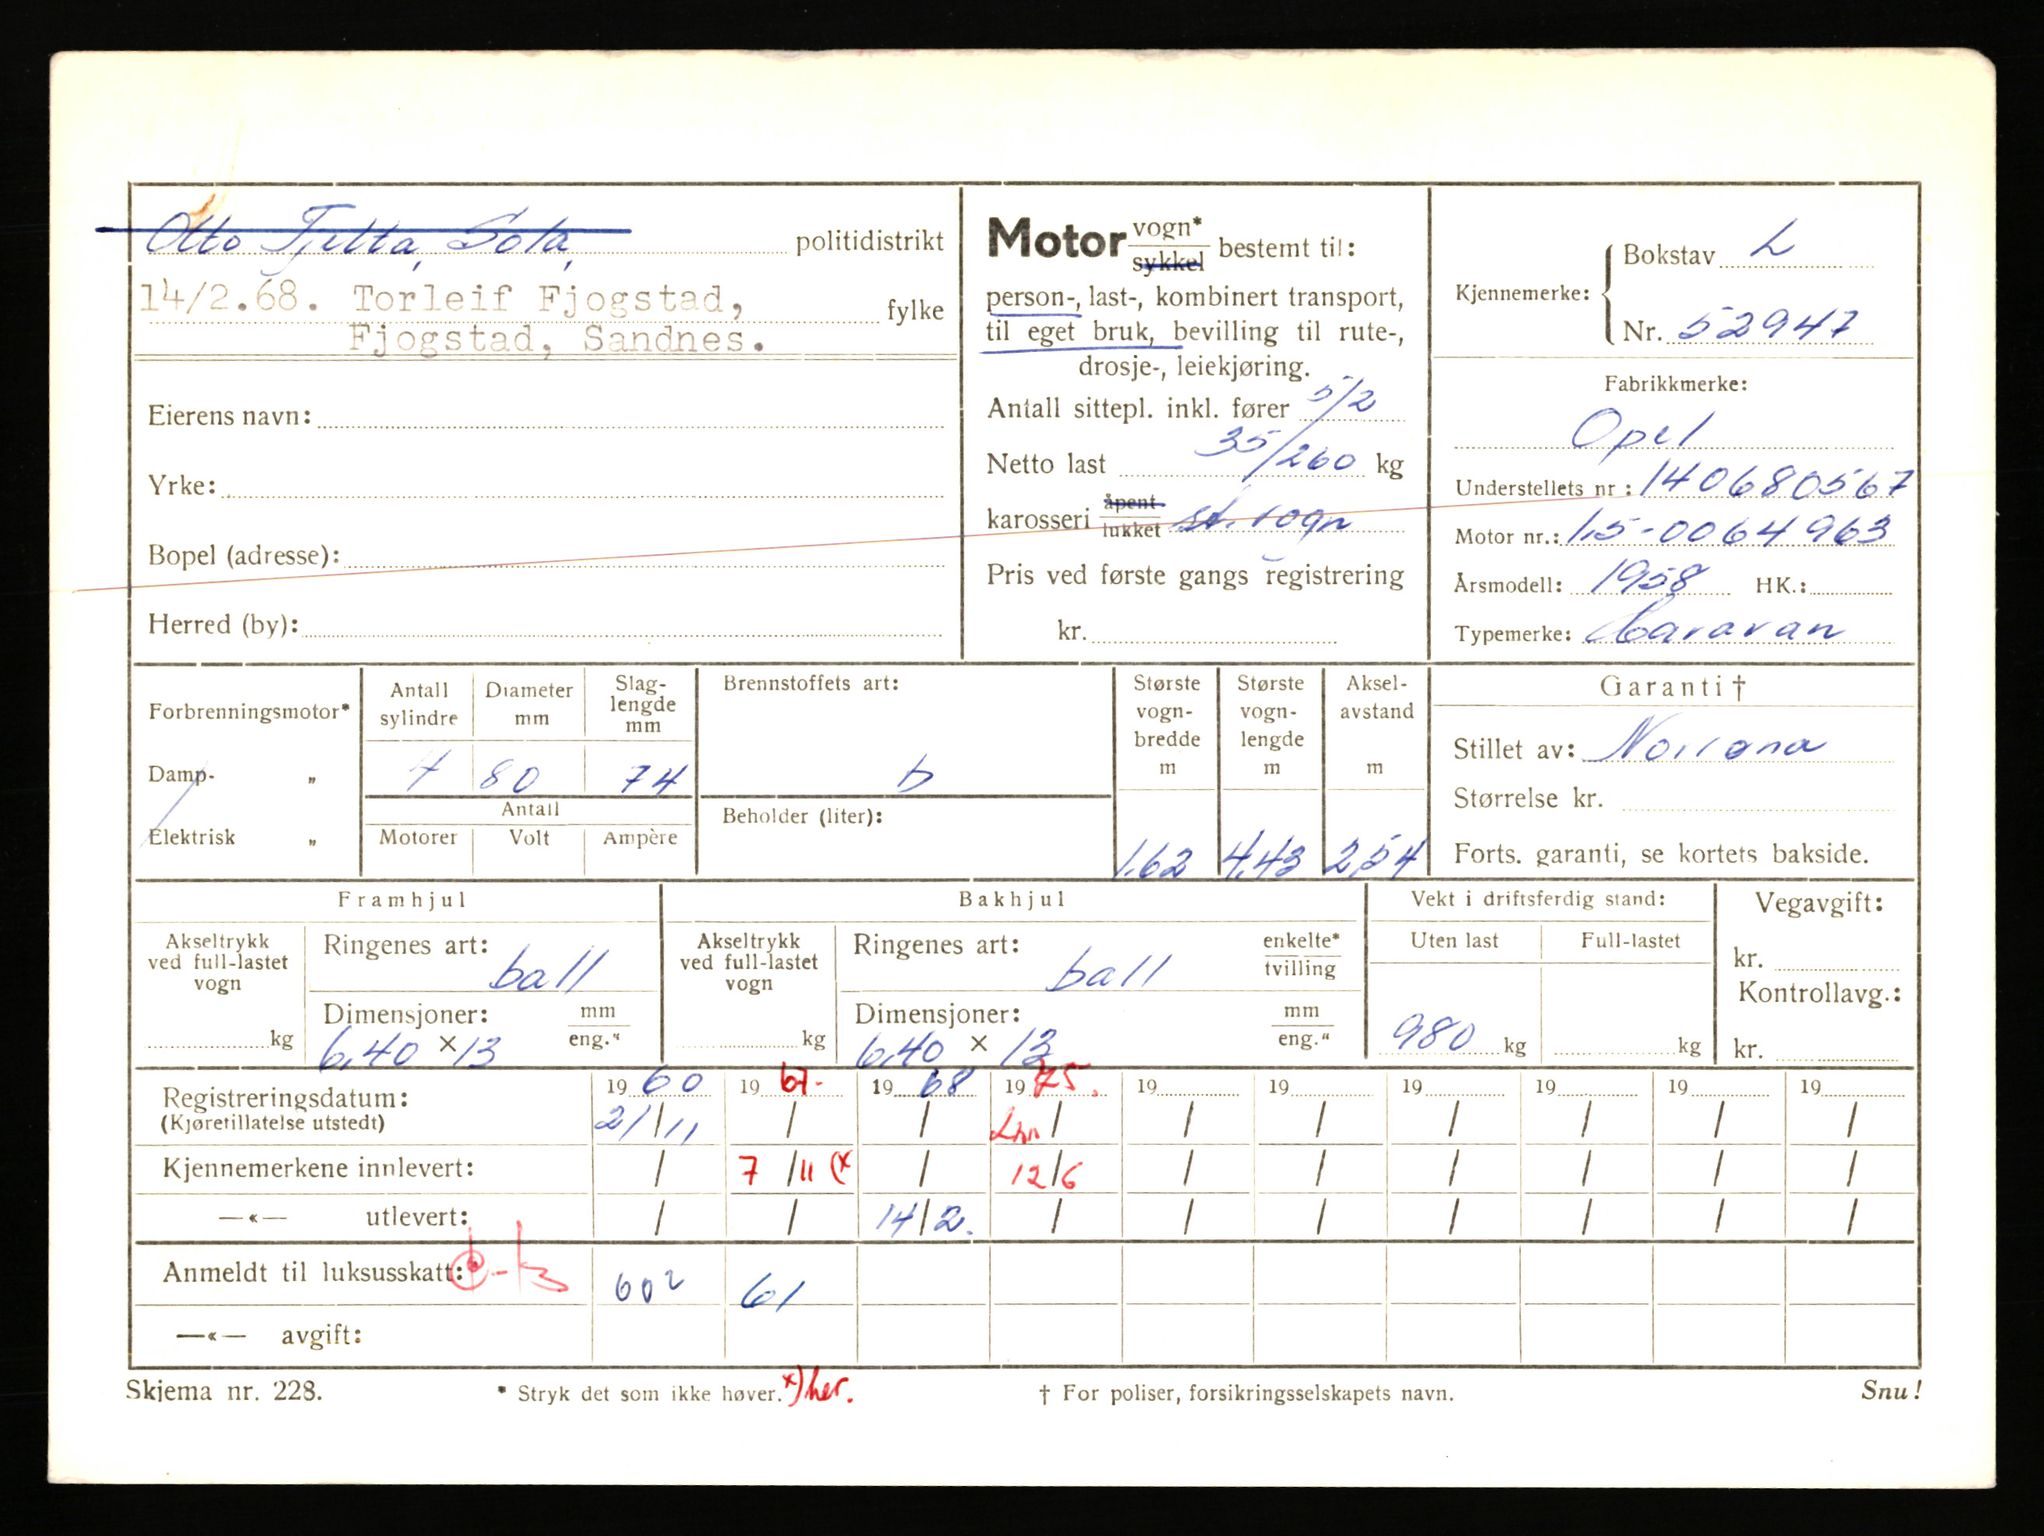 Otto Tjelta, Sola, politidistrikt
14/2.68. Torleif Fjogstad, fylke
Fjogstad, Sandnes.
Eierens navn:
Yrke:
Bopel (adresse):
Herred (by):
Motor vogn* sykkel bestemt til:
person-, last-, kombinert transport,
til eget bruk, bevilling til rute-,
drosje-, leiekjøring.
Antall sittepl. inkl. fører 5/2
Netto last 35/260 kg
karosseri åpent lukket st. vogn
Pris ved første gangs registrering
kr.
Kjennemerke: Bokstav L
Nr. 52947
Fabrikkmerke:
Opel
Understellets nr: 140680567
Motor nr.: 1,5-0064963
Årsmodell: 1958 HK.:
Typemerke: Caravan
Forbrenningsmotor*
Damp- „
Elektrisk „
Antall sylindre Diameter mm Slag-lengde mm
4 80 74
Antall
Motorer Volt Ampère
Brennstoffets art:
b
Beholder (liter):
Største vogn-bredde m
1,62
Største vogn-lengde m
4,43
Aksel-avstand m
2,54
Garanti †
Stillet av: Norrøna
Størrelse kr.
Forts. garanti, se kortets bakside.
Framhjul
Akseltrykk ved full-lastet vogn
kg
Ringenes art:
ball
Dimensjoner: mm eng."
6,40 x 13
Bakhjul
Akseltrykk ved full-lastet vogn
kg
Ringenes art: enkelte* tvilling
ball
Dimensjoner: mm eng."
6,40 x 13
Vekt i driftsferdig stand:
Uten last Full-lastet
980 kg kg
Vegavgift:
kr.
Kontrollavg.:
kr.
Registreringsdatum: 1960 1967. 1968 1975. 19 19 19 19 19 19
(Kjøretillatelse utstedt) 21/11 / / / / / / / / /
Kjennemerkene innlevert: / 7/11 (x / 12/6 / / / / / /
—«— utlevert: / / 14/2. / / / / / / /
Anmeldt til luksusskatt: 602 61
—«— avgift:
Skjema nr. 228.
* Stryk det som ikke høver. x) her.
† For poliser, forsikringsselskapets navn.
Snu!